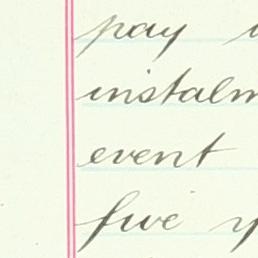 pay
instalm
event
five y